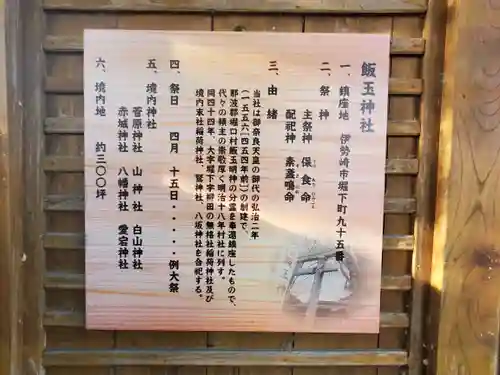 飯玉神社
一、鎮座地 伊勢崎市堀下町九十五番
二、祭神
主祭神 保食命
配祀神 素盞鳴命
三、由緒
当社は御奈良天皇の御代の弘治二年
(一五五六)(四五四年前)の創建で、
那波郡堀口村飯玉明神の分霊を奉還鎮座したもので、
代々の領主の崇敬厚く明治十八年村社に列す。
同四十四年、大字堀下字柳田の無格社稲荷神社及び
境内末社稲荷神社、鷲神社、八坂神社を合祀す。
四、祭日 四月 十五日・・・・・例大祭
五、境内神社
菅原神社 山神社 白山神社
赤城神社 八幡神社 愛宕神社
六、境内地 約三〇〇坪